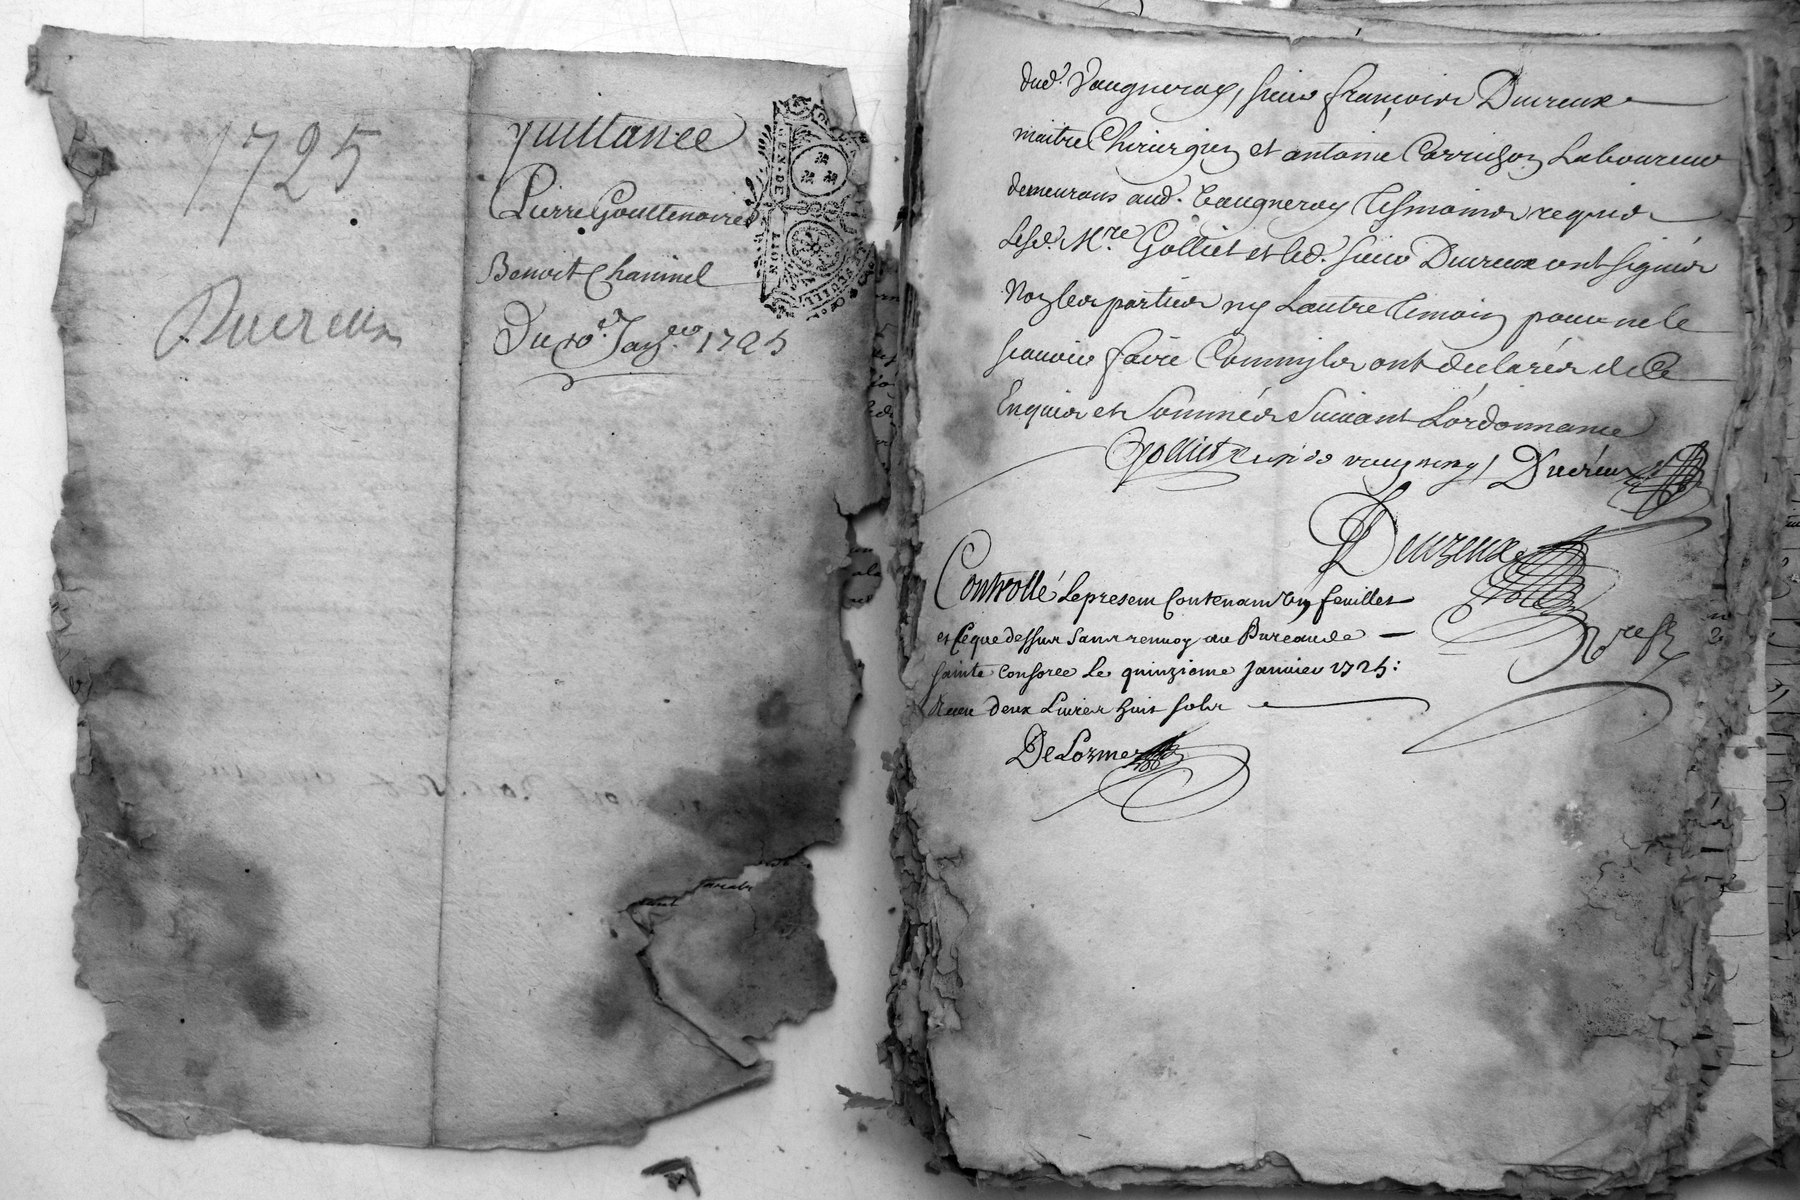 1725
Ducreux
quittance
Pierre Goultenoire
Benoit Chamuel
Du 10e. Janv.er 1725
GEN. DE LION
dud. Vaugneray, sieur françois Ducreux
maitre Chirurgien et antoine Laboureur
demeurans aud. Vaugneray tesmoins requis
Lesd. Mre Golliet et led. sieur Ducreux ont signés
Non les parties ny Lautre temoin pour ne le
scavoir faire Comm ils ont declarés de Ce
Enquis et sommés suivant Lordonnance
Golliet curé de vaugneray Ducreux
Ducreux
Controllé Le present Contenant un feuillet
et Ce que dessus sans renvoy au Bureau de
sainte Consorce Le quinzieme Janvier 1725:
Receu deux Livres huit sols
DeLorme